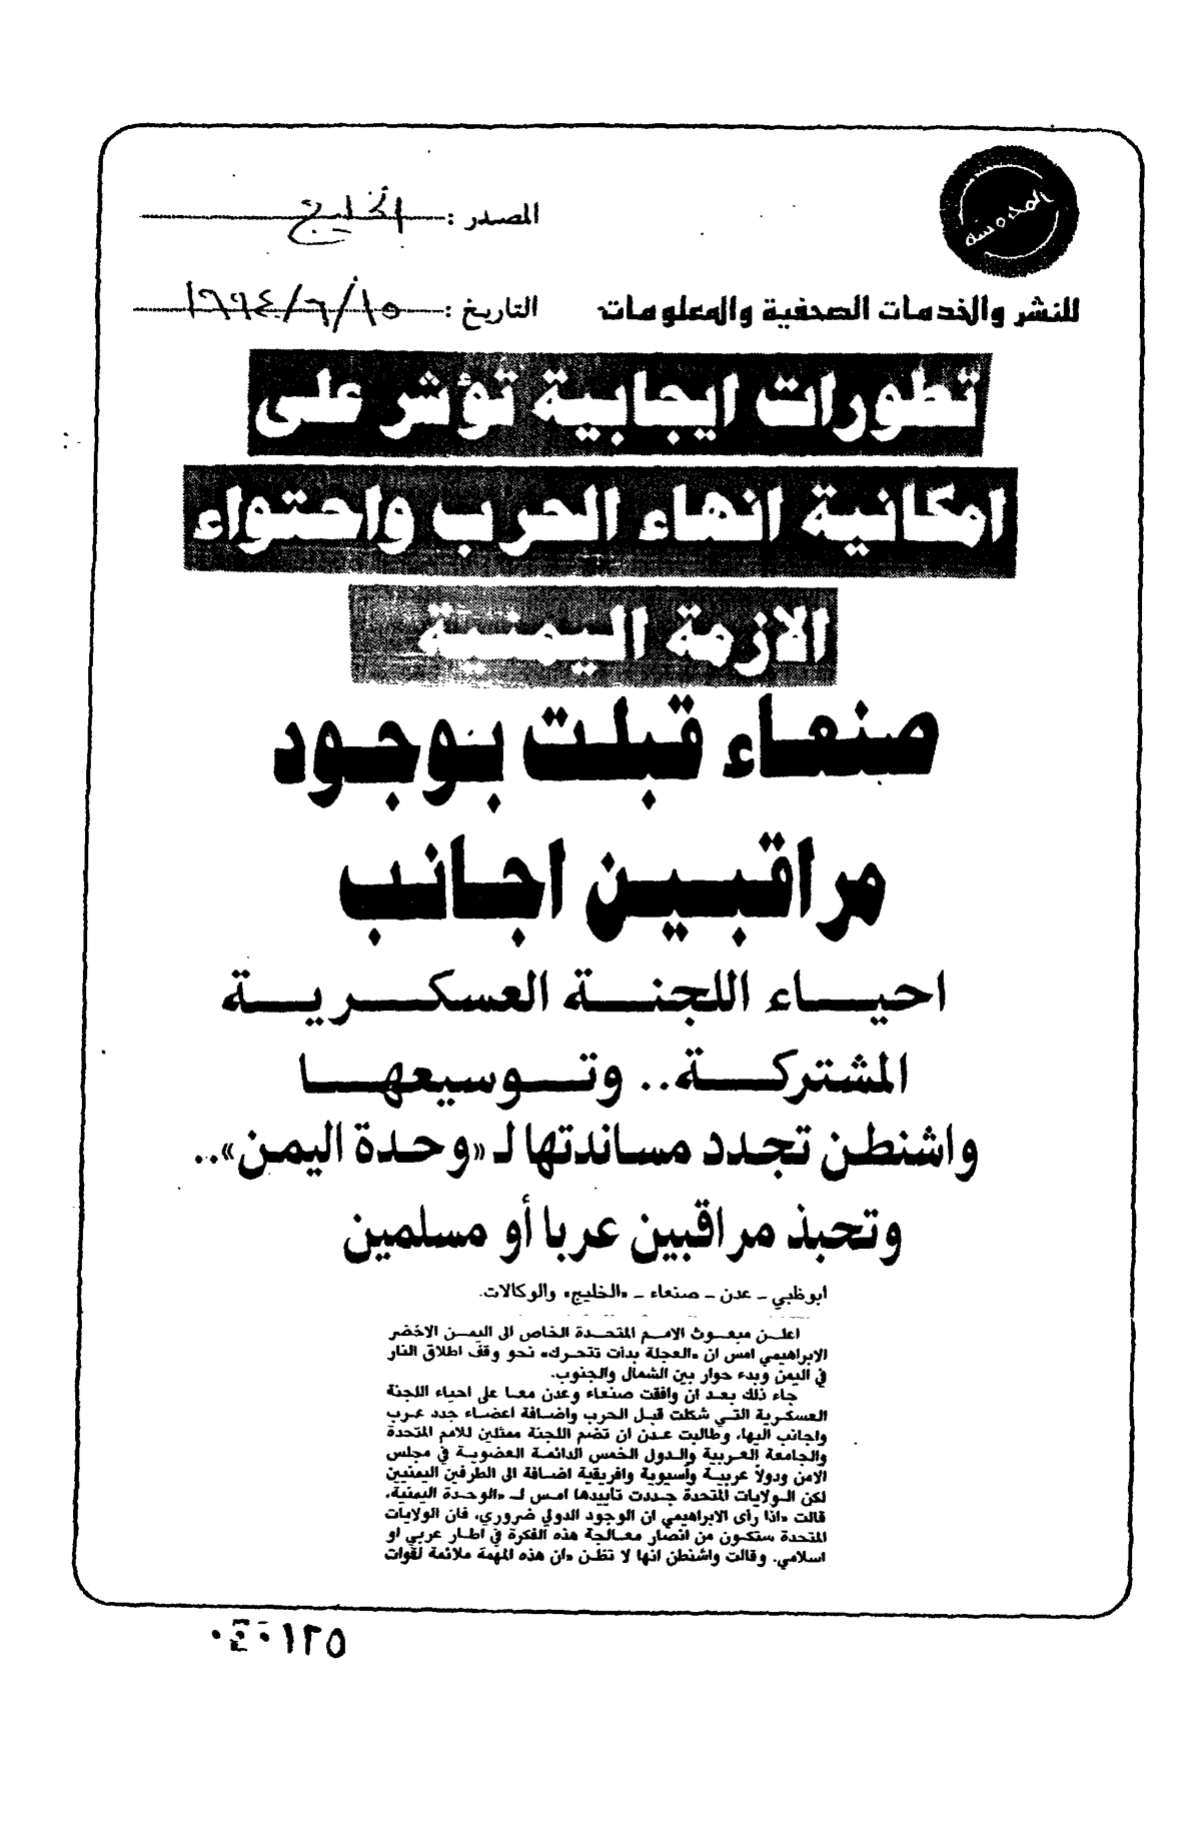 المحروسة
المصدر : الخليج
للنشر والخدمات الصحفية والمعلومات
التاريخ : ١٩٩٤/٦/١٥
تطورات ايجابية تؤشر على
امكانية انهاء الحرب واحتواء
الازمة اليمنية
صنعاء قبلت بوجود
مراقبين اجانب
احياء اللجنة العسكرية
المشتركة.. وتوسيعها
واشنطن تجدد مساندتها لـ «وحدة اليمن»..
وتحبذ مراقبين عربا أو مسلمين
ابوظبي - عدن - صنعاء - «الخليج» والوكالات.
اعلن مبعوث الامم المتحدة الخاص الى اليمن الاخضر
الابراهيمي امس ان «العجلة بدأت تتحرك» نحو وقف اطلاق النار
في اليمن وبدء حوار بين الشمال والجنوب.
جاء ذلك بعد ان وافقت صنعاء وعدن معا على احياء اللجنة
العسكرية التي شكلت قبل الحرب واضافة أعضاء جدد عرب
واجانب اليها، وطالبت عدن ان تضم اللجنة ممثلين للامم المتحدة
والجامعة العربية والدول الخمس الدائمة العضوية في مجلس
الامن ودولاً عربية وآسيوية وافريقية اضافة الى الطرفين اليمنيين
لكن الولايات المتحدة جددت تأييدها امس لـ «الوحدة اليمنية»،
قالت «اذا رأى الابراهيمي ان الوجود الدولي ضروري، فان الولايات
المتحدة ستكون من انصار معالجة هذه الفكرة في اطار عربي او
اسلامي. وقالت واشنطن انها لا تظن «ان هذه المهمة ملائمة لقوات